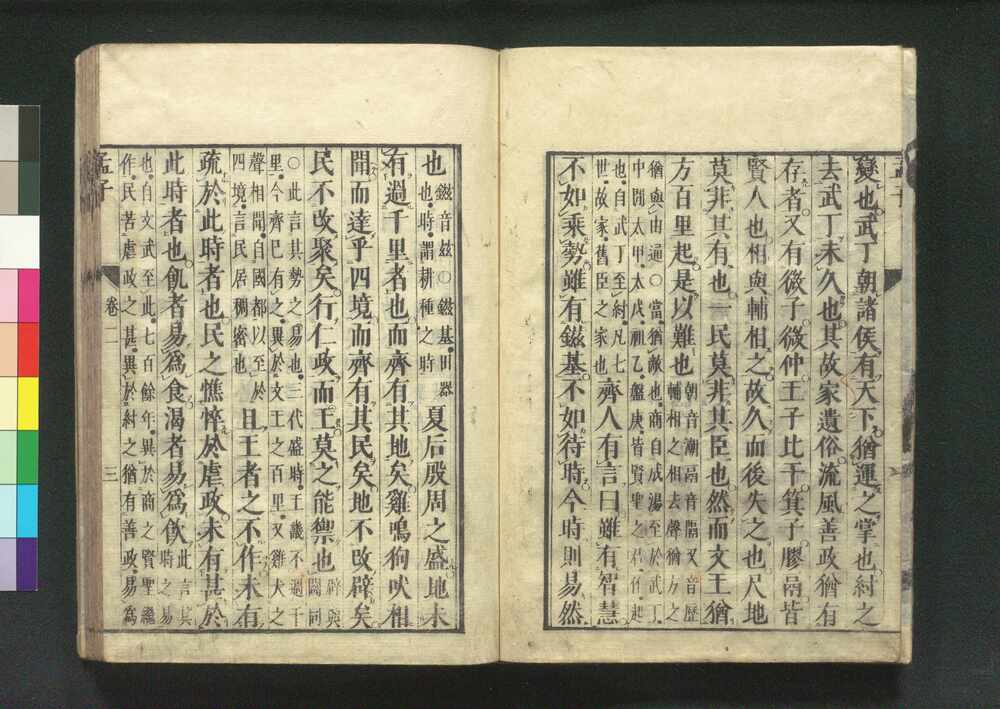 孟子
變也武丁朝諸侯有天下猶運之掌也紂之
去武丁未久也其故家遺俗流風善政猶有
存者又有微子微仲王子比干箕子膠鬲皆
賢人也相與輔相之故久而後失之也尺地
莫非其有也一民莫非其臣也然而文王猶
方百里起是以難也
朝音潮鬲音隔又音歷
輔相之相去聲猶方之
猶與由通○當猶敵也商自成湯至於武丁
中閒太甲太戊祖乙盤庚皆賢聖之君作起
也自武丁至紂凡七
世故家舊臣之家也
齊人有言曰雖有智慧
不如乘勢雖有鎡基不如待時今時則易然
也
鎡音兹○鎡基田器
也時謂耕種之時
夏后殷周之盛地未
有過千里者也而齊有其地矣雞鳴狗吠相
聞而達乎四境而齊有其民矣地不改辟矣
民不改聚矣行仁政而王莫之能禦也
辟與
闢同
○此言其勢之易也三代盛時王畿不過千
里今齊已有之異於文王之百里又雞犬之
聲相聞自國都以至於
四境言民居稠密也
且王者之不作未有
疏於此時者也民之憔悴於虐政未有甚於
此時者也飢者易爲食渴者易爲飮
此言其
時之易
也自文武至此七百餘年異於商之賢聖繼
作民苦虐政之甚異於紂之猶有善政易爲
孟子
卷二
三